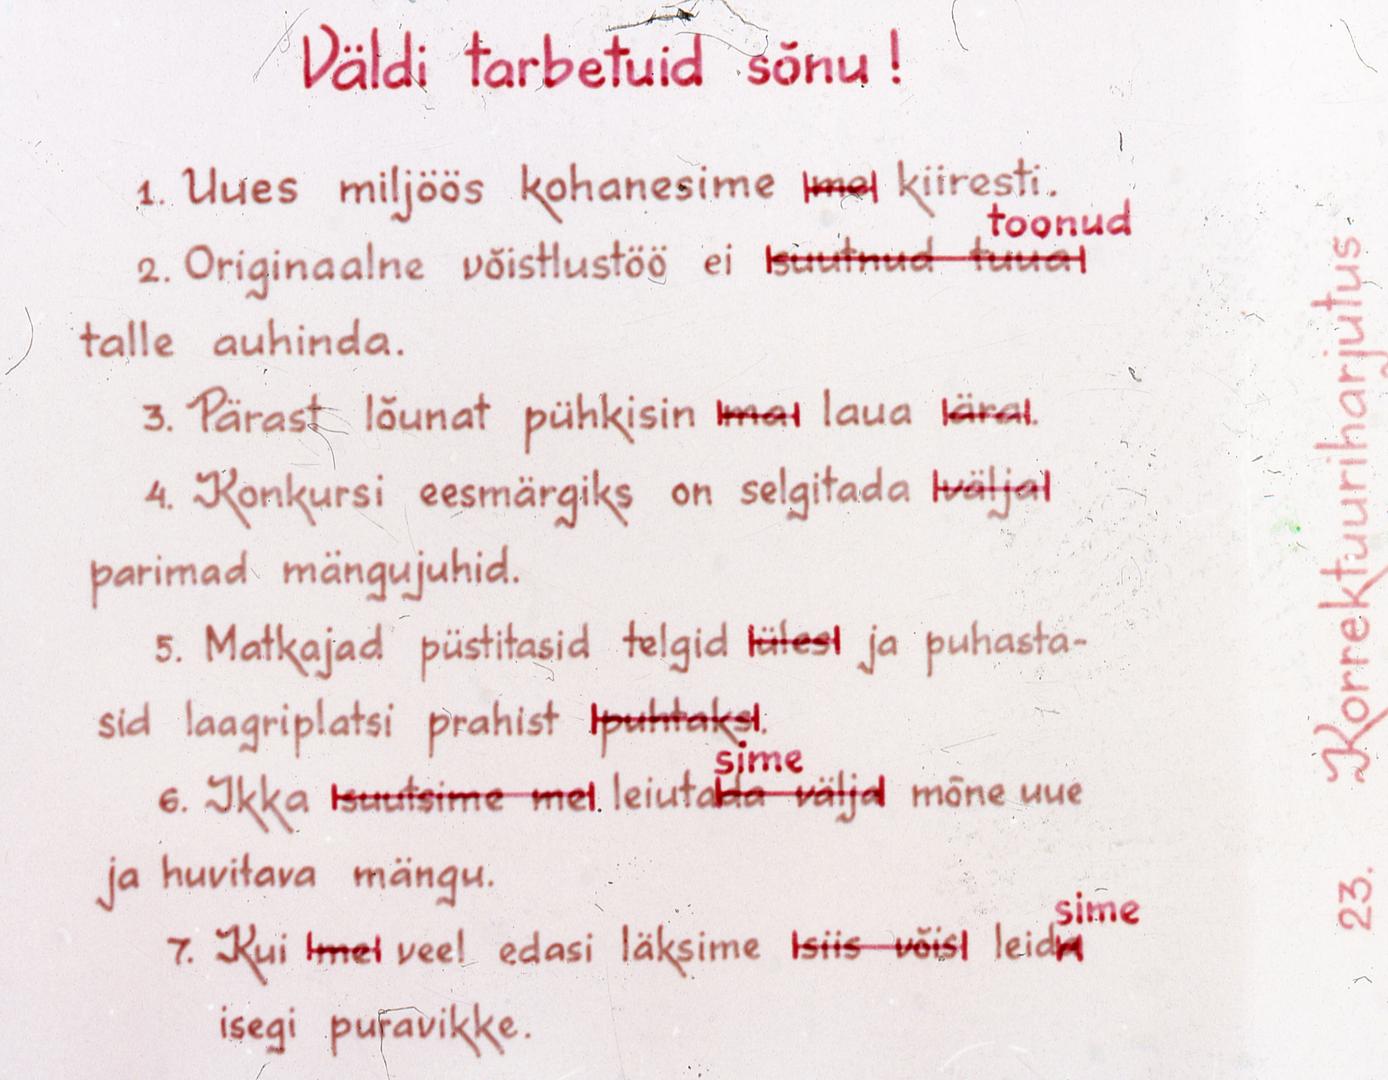 Väldi tarbetuid sõnu!
1. Uues miljöös kohanesime me kiiresti.
toonud
2. Originaalne võistlustöö ei suutnud tuua
talle auhinda.
3. Pärast lõunat pühkisin ma laua ära.
4. Konkursi eesmärgiks on selgitada välja
parimad mängujuhid.
5. Matkajad püstitasid telgid üles ja puhasta-
sid laagriplatsi prahist puhtaks.
sime
6. Ikka suutsime me leiutada välja mõne uue
ja huvitava mängu.
sime
7. Kui me veel edasi läksime siis võis leida
isegi puravikke.
23. Korrektuuriharjutus